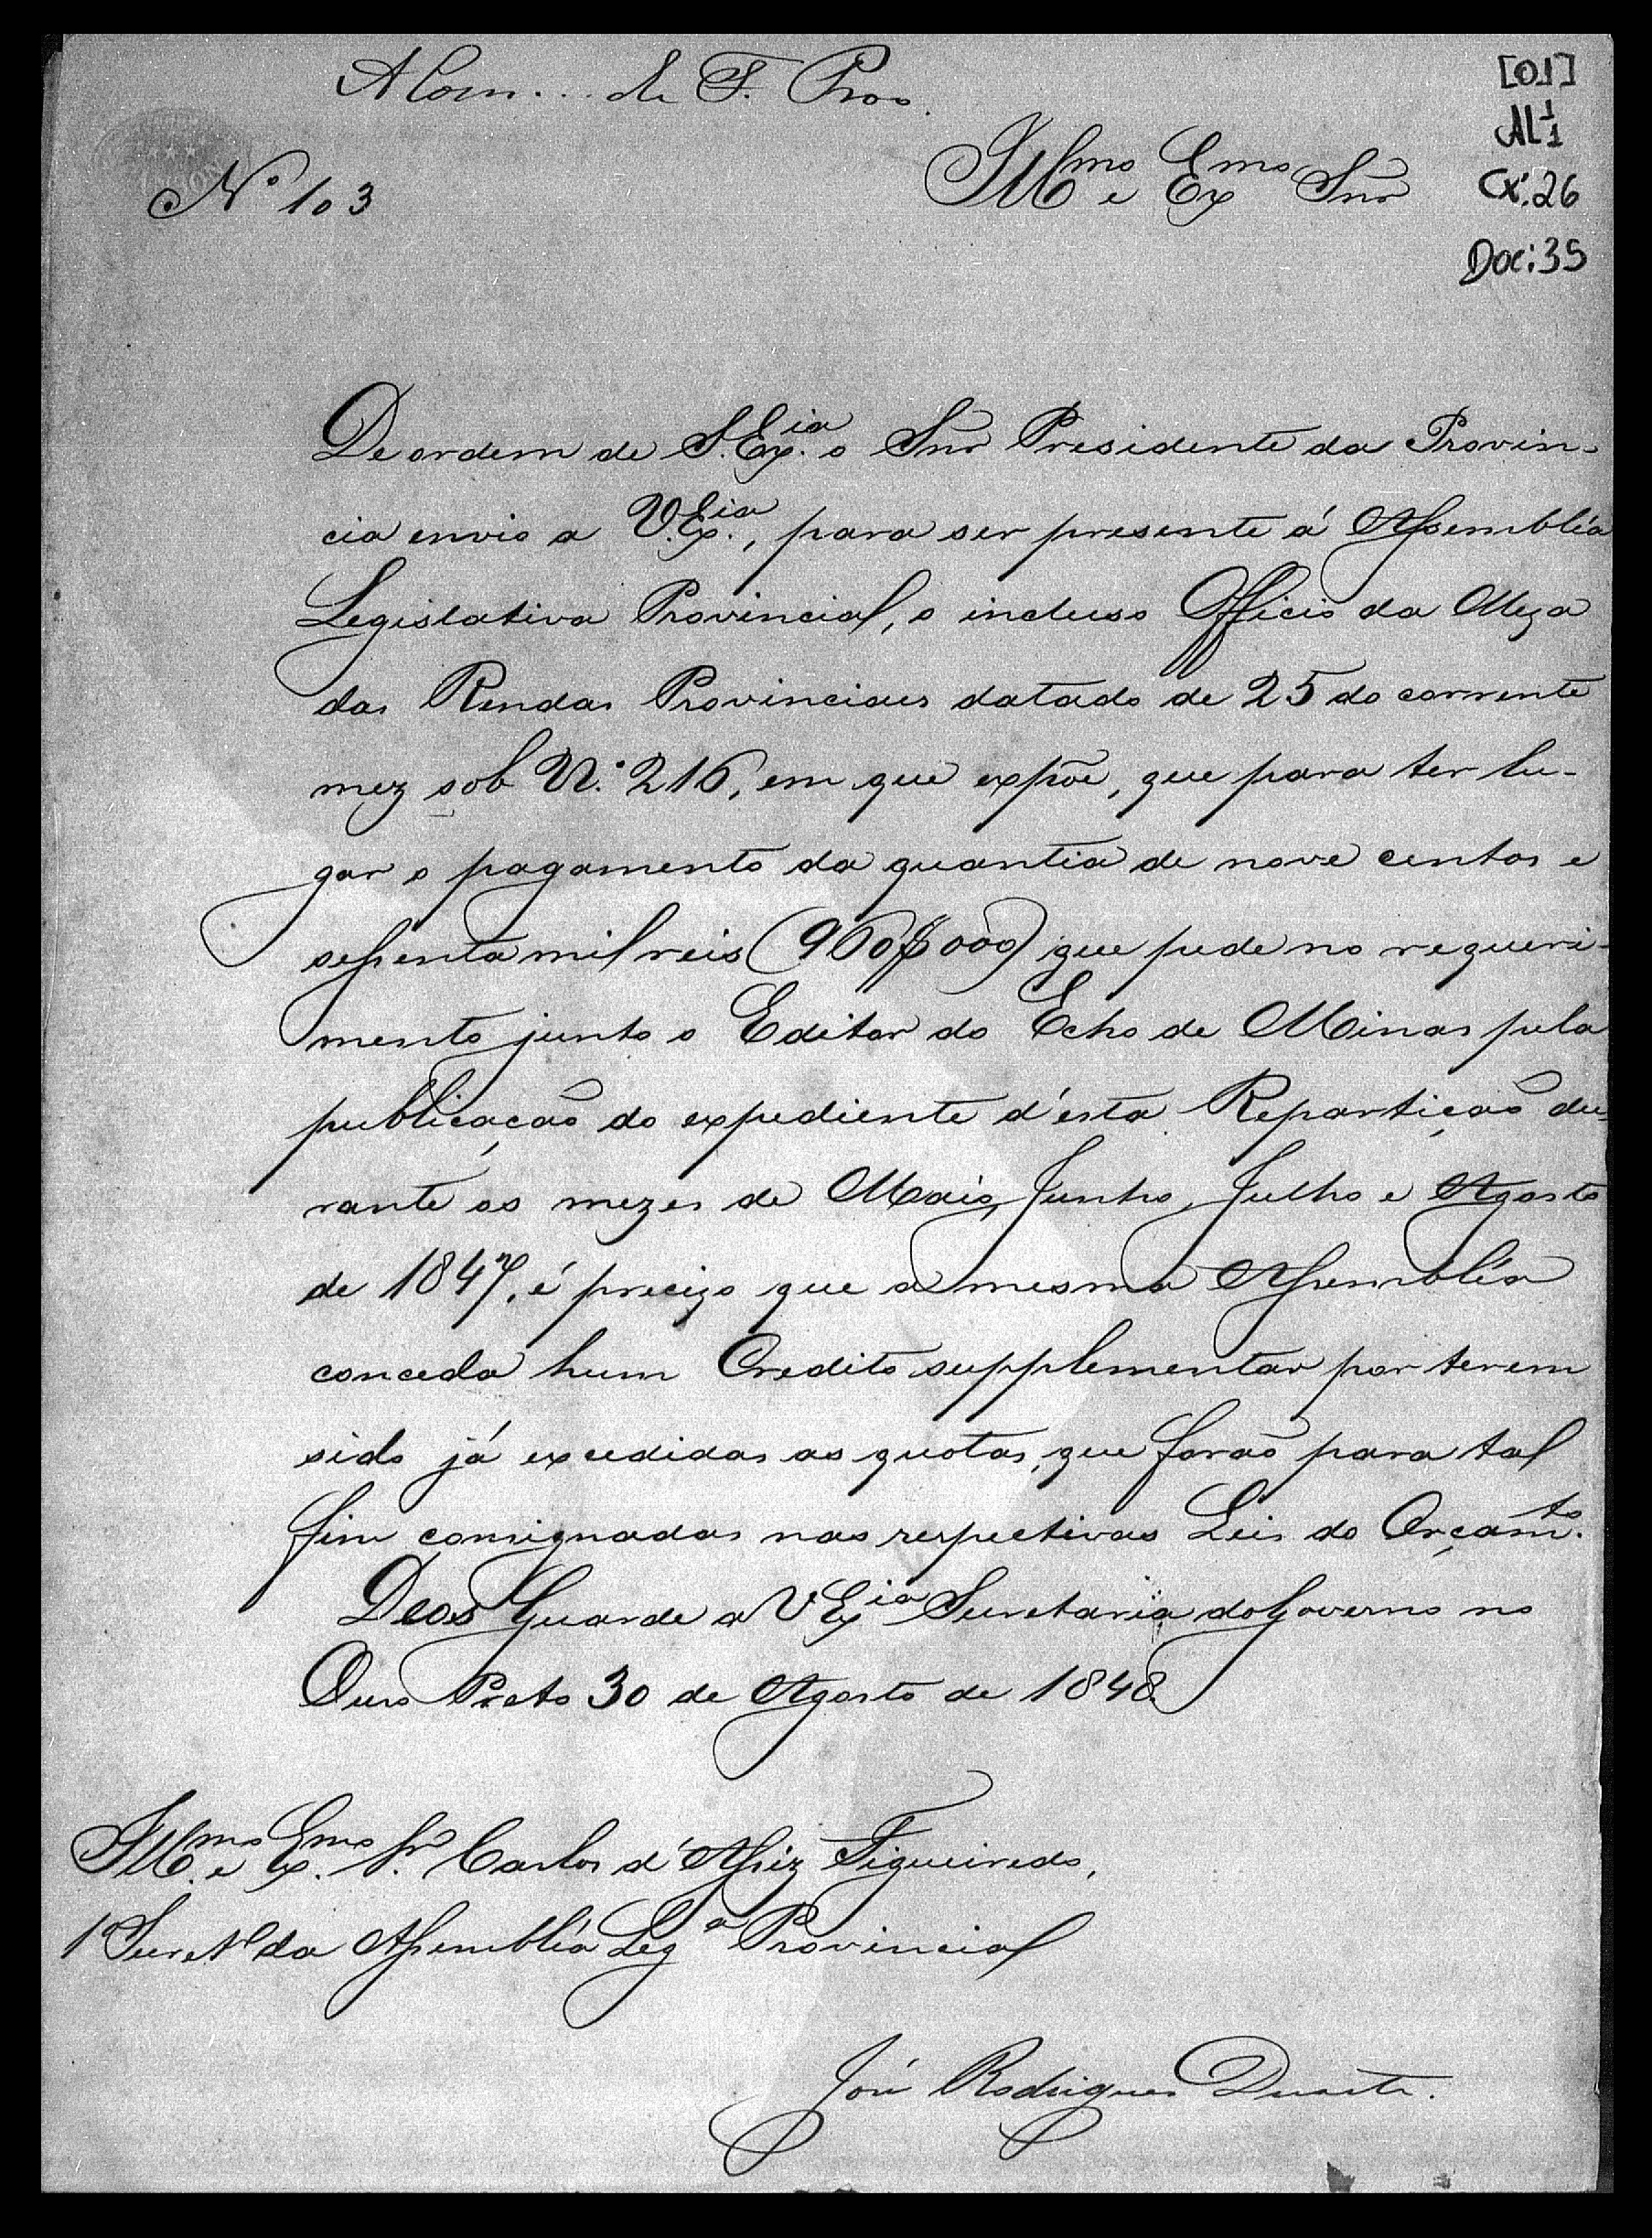 A Com... de F. Prov.
[01]
AL 1/1
Cx: 26
Doc: 35
Nº 103
Illmo e Exmo Snr
De ordem de S. Ex.ia o Snr Presidente da Provin-
cia envio a V. Ex.ia, para ser presente á Assembléa
Legislativa Provincial, o incluso Officio da Meza
das Rendas Provinciaes datado de 25 do corrente
mez sob N.º 216, em que expõe, que para ter lu-
gar o pagamento da quantia de nove centos e
sessenta mil reis (960$000) que pede no requeri-
mento junto o Editor do Echo de Minas pela
publicação do expediente d'esta Repartição du-
rante os mezes de Maio, Junho, Julho e Agosto
de 1847, é precizo que a mesma Assembléa
conceda hum Credito supplementar por terem
sido já excedidas as quotas, que forão para tal
fim consignadas nas respectivas Leis do Orçam.to
Deos Guarde a V Exia Secretaria do Governo no
Ouro Preto 30 de Agosto de 1848.
Ill.mo e Ex.mo Sr. Carlos d'Assiz Figueiredo,
1º Secret.º da Assembléa Lega Provincial
José Rodrigues Duarte.